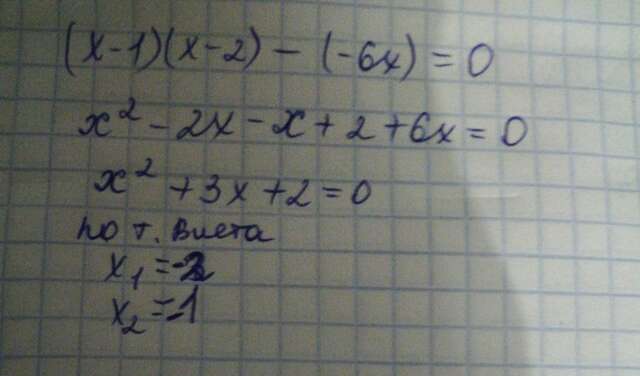 (x-1)(x-2) - (-6x) = 0
x² - 2x - x + 2 + 6x = 0
x² + 3x + 2 = 0
по т. Виета
x₁ = -2
x₂ = -1